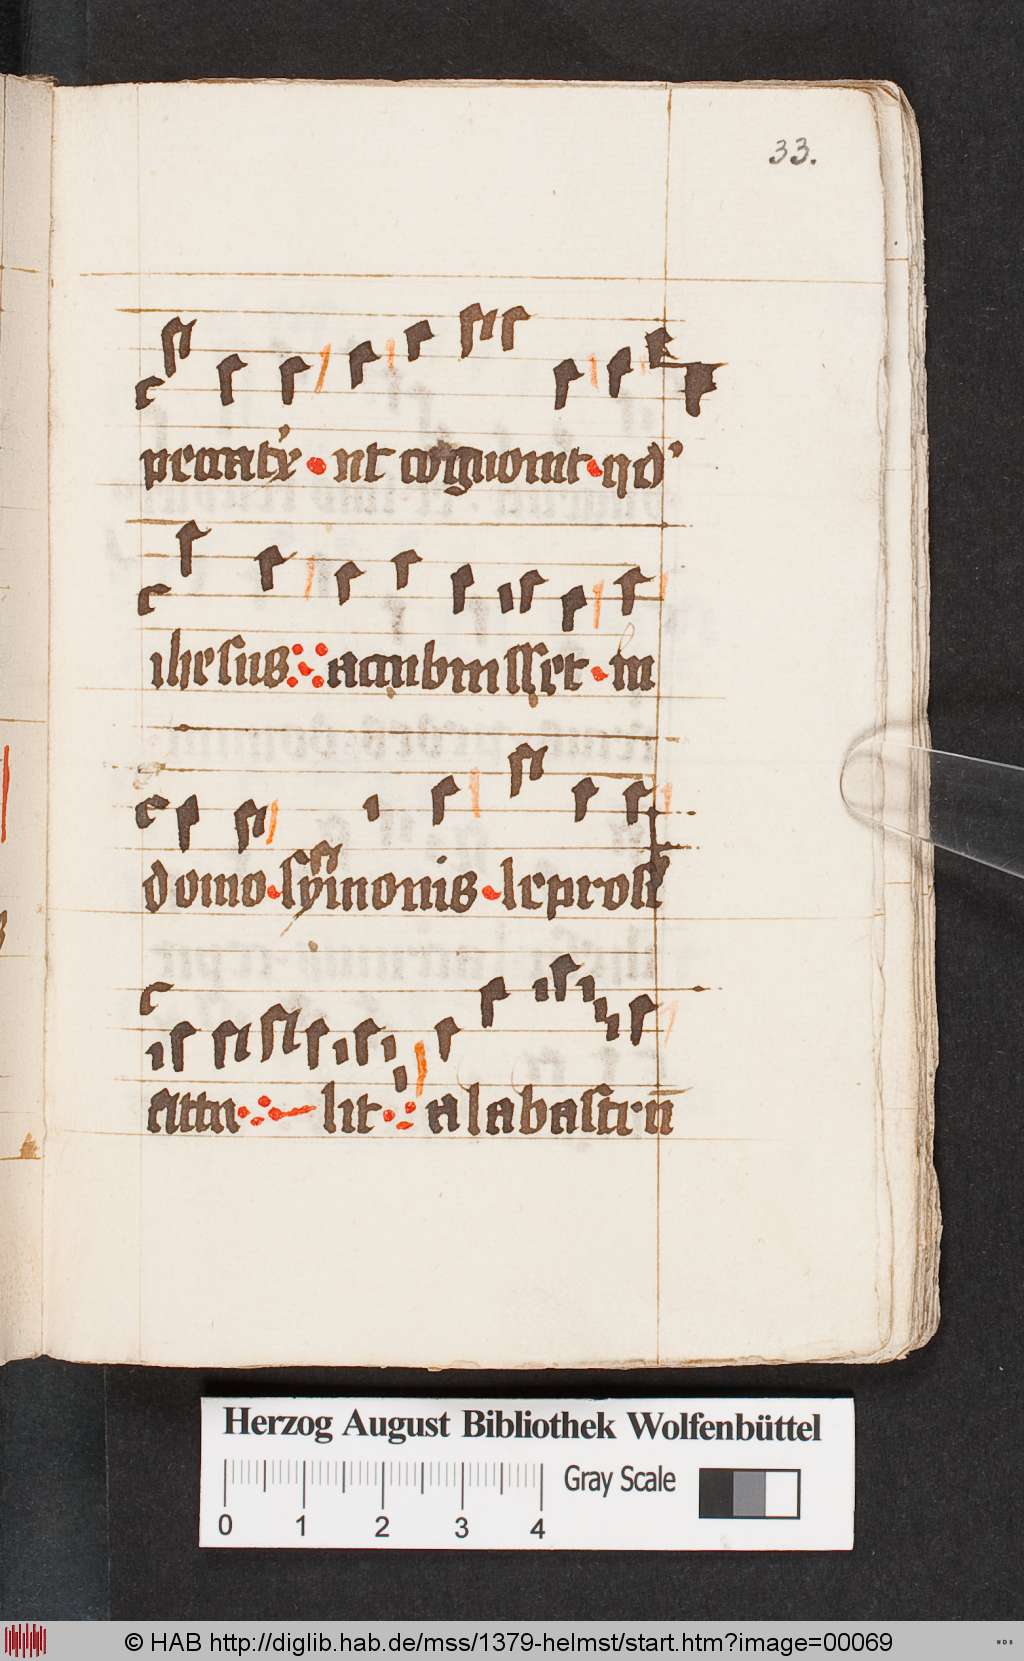 33.
peccat͛x • ut cognouit • qd'
ihesus ⁘ accubuisset • in
domo • symonis • leprosi
attu lit • alabastrū
Herzog August Bibliothek Wolfenbüttel
Gray Scale
0 1 2 3 4
© HAB http://diglib.hab.de/mss/1379-helmst/start.htm?image=00069